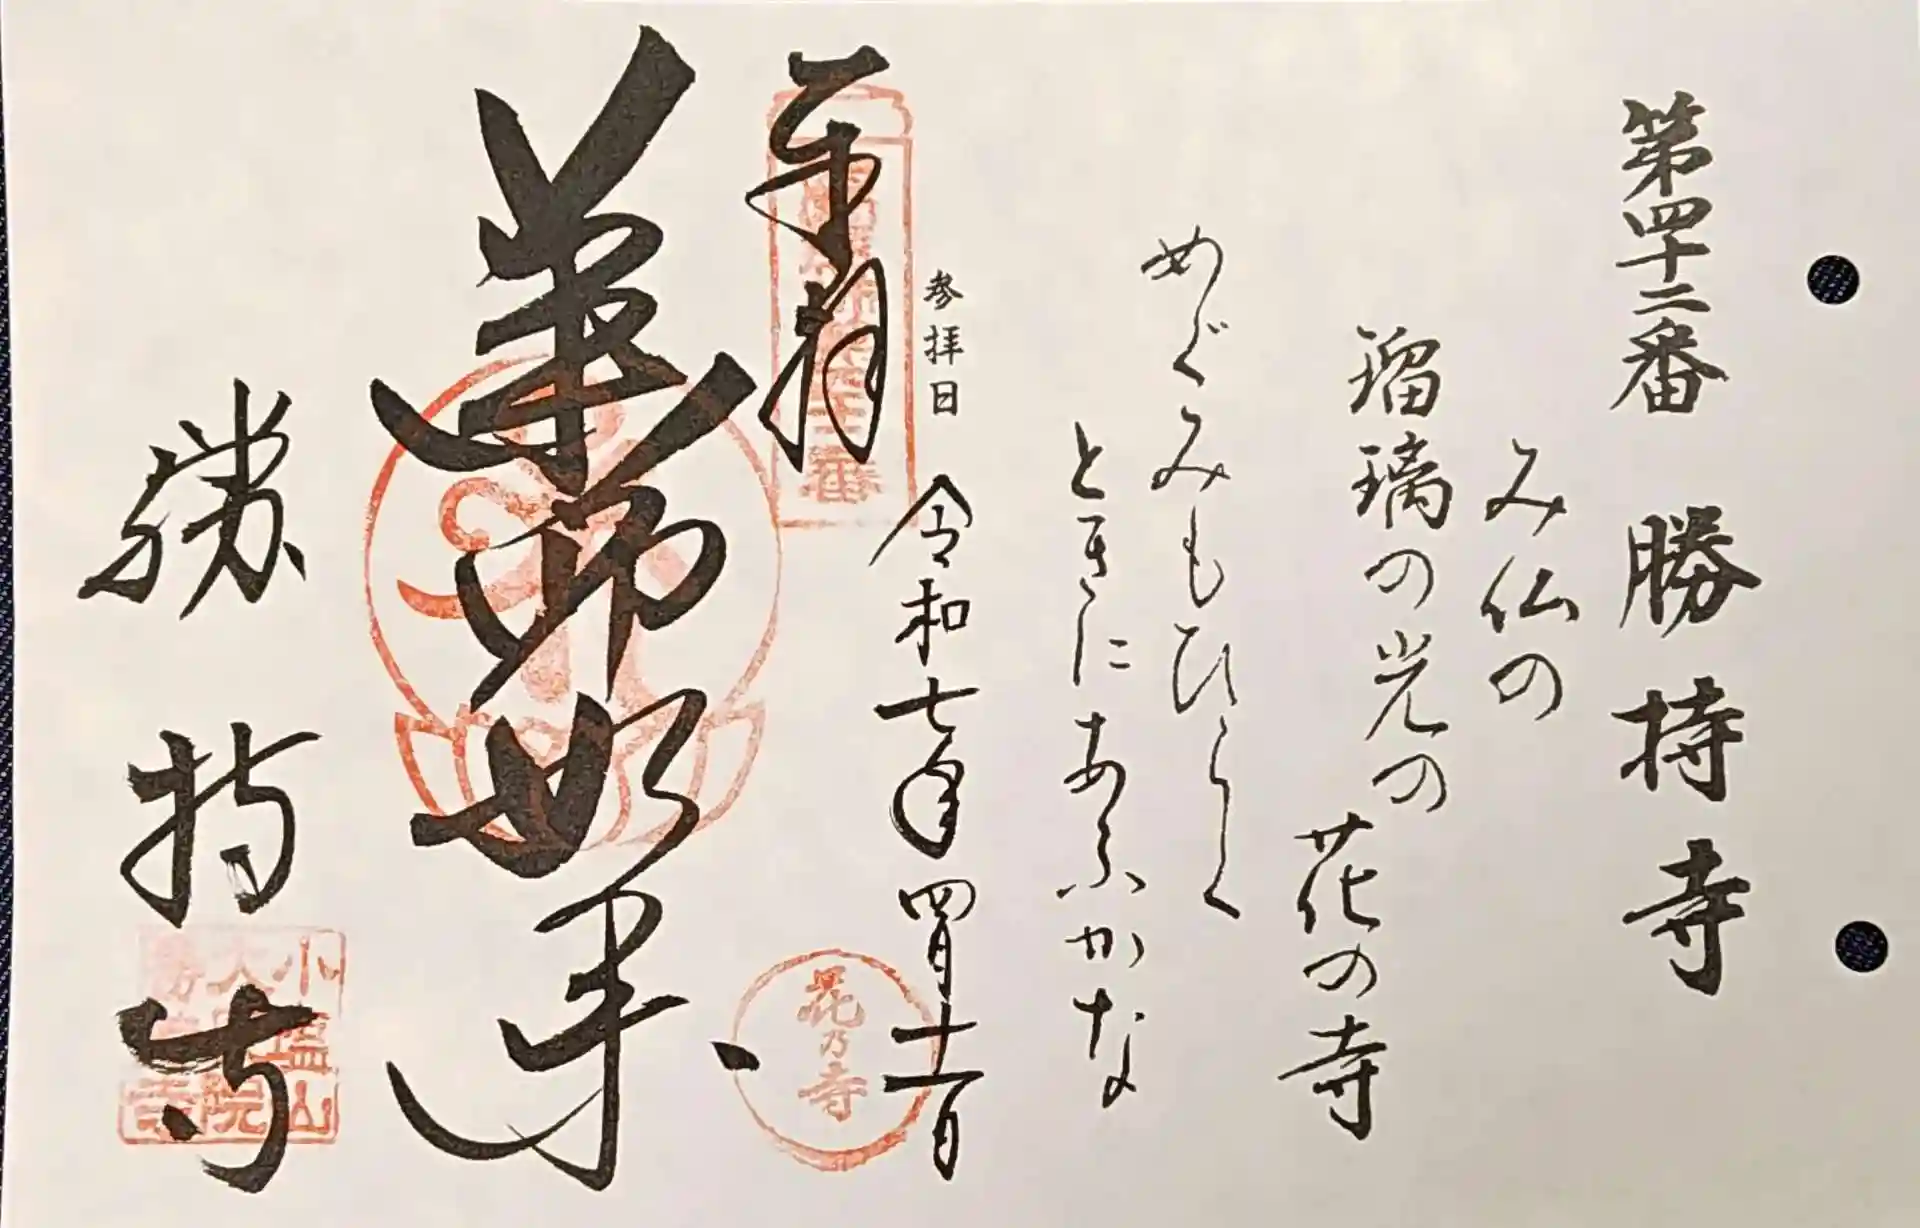 第四十二番 勝持寺
み仏の
瑠璃の光の
花の寺
めぐみもひらく
ときにあふかな
参拝日 令和七年四月十一日
奉拝
花乃寺
薬師如来
勝持寺
小塩山
大原院
勝持寺